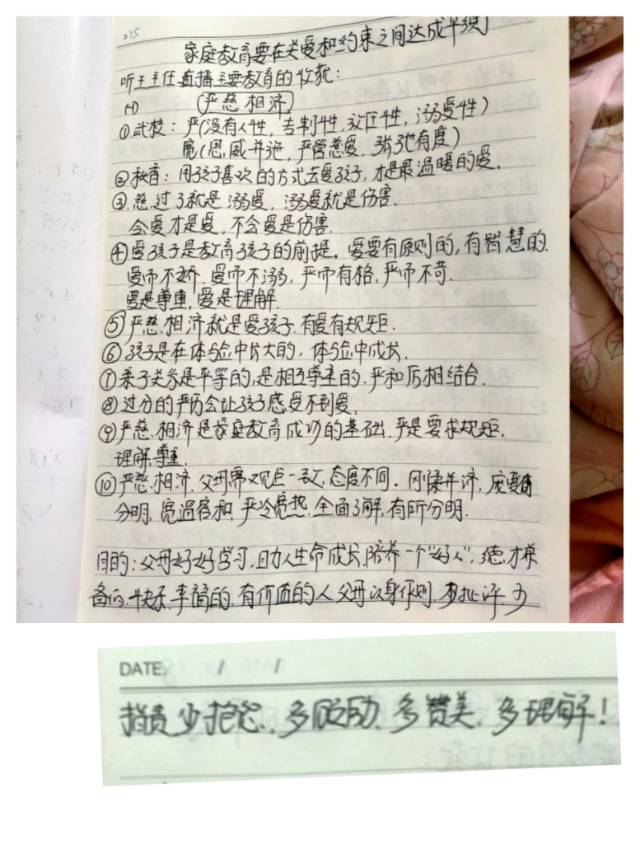 275
家庭教育要在关爱和约束之间达成平衡
听王主任直播主要教育的收获:
(一) (严慈相济)
①武校: 严(没有人性, 专制性, 放任性, 溺爱性)
宽(恩威并施, 严管慈爱, 张弛有度)
②秋音: 用孩子喜欢的方式去爱孩子, 才是最温暖的爱.
③慈过了就是溺爱, 溺爱就是伤害.
会爱才是爱, 不会爱是伤害.
④爱孩子是教育孩子的前提. 爱要有原则的, 有智慧的.
爱而不娇, 爱而不溺, 严而有格, 严而不苛.
爱是尊重, 爱是理解.
⑤严慈相济就是爱孩子, 有爱有规矩.
⑥孩子是在体验中长大的, 体验中成长.
⑦亲子关系是平等的, 是相互尊重的, 严和厉相结合.
⑧过分的严厉会让孩子感受不到爱.
⑨严慈相济是家庭教育成功的基础, 严是要求规矩,
理解, 尊重.
⑩严慈相济, 父母要观点一致, 态度不同. 刚柔并济,
分明, 宽温容和, 严冷宽热, 全面了解, 有所分明.
目的: 父母好好学习, 助人生命成长, 培养一个"好人", 德才兼
备的, 快乐, 幸福的, 有价值的人. 父母以身作则, 少批评, 少
DATE / /
指责, 少抱怨, 多鼓励, 多赞美, 多理解!